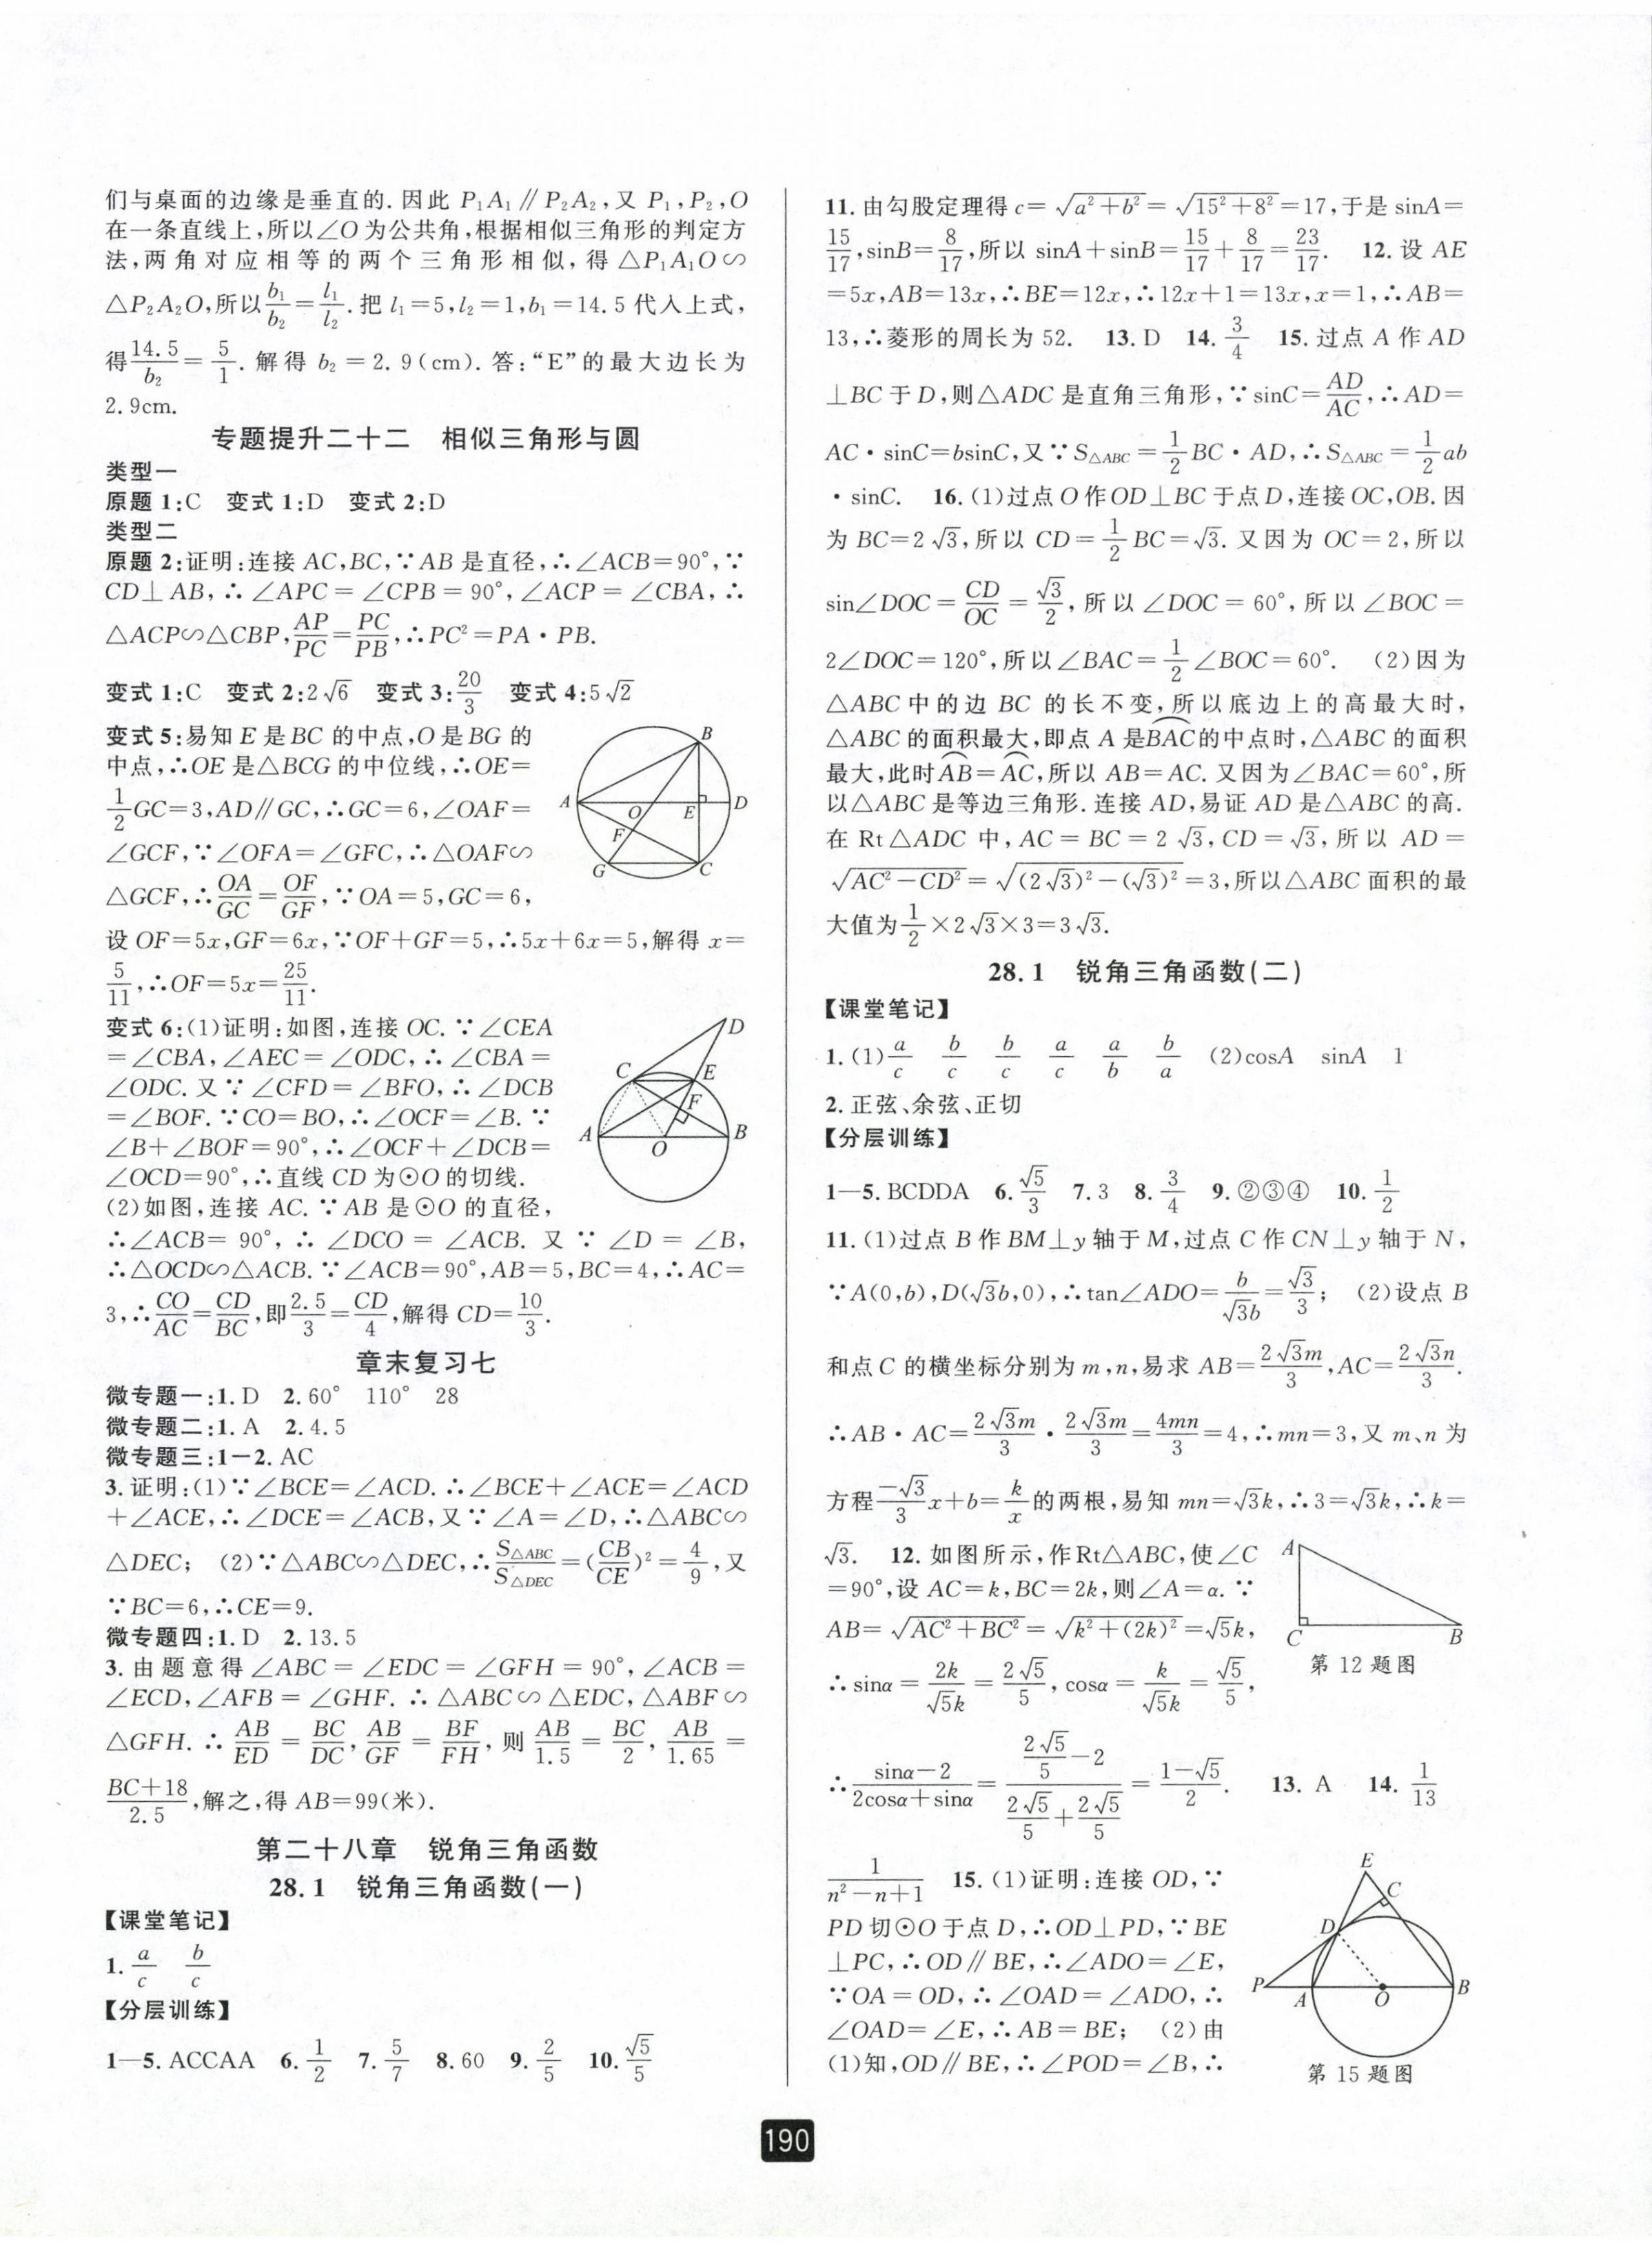 们与桌面的边缘是垂直的.因此 P₁A₁∥P₂A₂,又 P₁,P₂,O
在一条直线上,所以∠O为公共角,根据相似三角形的判定方
法,两角对应相等的两个三角形相似,得△P₁A₁O∽
△P₂A₂O,所以b₁/b₂=l₁/l₂.把 l₁=5,l₂=1,b₁=14.5代入上式,
得14.5/b₂=5/1.解得 b₂=2.9(cm).答:“E”的最大边长为
2.9cm.
专题提升二十二 相似三角形与圆
类型一
原题1:C 变式1:D 变式2:D
类型二
原题2:证明:连接 AC,BC,∵AB 是直径,∴∠ACB=90°,∵
CD⊥AB,∴∠APC=∠CPB=90°,∠ACP=∠CBA,∴
△ACP∽△CBP,AP/PC=PC/PB,∴PC²=PA·PB.
变式1:C 变式2:2√6 变式3:20/3 变式4:5√2
变式5:易知 E 是 BC 的中点,O 是 BG 的
中点,∴OE 是△BCG 的中位线,∴OE=
1/2GC=3,AD∥GC,∴GC=6,∠OAF=
∠GCF,∵∠OFA=∠GFC,∴△OAF∽
△GCF,∴OA/GC=OF/GF,∵OA=5,GC=6,
设 OF=5x,GF=6x,∵OF+GF=5,∴5x+6x=5,解得 x=
5/11,∴OF=5x=25/11.
B
A
O
E
D
F
G
C
变式6:(1)证明:如图,连接 OC.∵∠CEA
=∠CBA,∠AEC=∠ODC,∴∠CBA=
∠ODC.又∵∠CFD=∠BFO,∴∠DCB
=∠BOF.∵CO=BO,∴∠OCF=∠B.∵
∠B+∠BOF=90°,∴∠OCF+∠DCB=
∠OCD=90°,∴直线 CD 为⊙O 的切线.
(2)如图,连接 AC.∵AB 是⊙O 的直径,
∴∠ACB=90°,∴∠DCO=∠ACB.又∵∠D=∠B,
∴△OCD∽△ACB.∵∠ACB=90°,AB=5,BC=4,∴AC=
3,∴CO/AC=CD/BC,即2.5/3=CD/4,解得 CD=10/3.
D
C
E
F
A
O
B
章末复习七
微专题一:1.D 2.60° 110° 28
微专题二:1.A 2.4.5
微专题三:1—2.AC
3.证明:(1)∵∠BCE=∠ACD.∴∠BCE+∠ACE=∠ACD
+∠ACE,∴∠DCE=∠ACB,又∵∠A=∠D,∴△ABC∽
△DEC; (2)∵△ABC∽△DEC,∴S△ABC/S△DEC=(CB/CE)²=4/9,又
∵BC=6,∴CE=9.
微专题四:1.D 2.13.5
3.由题意得∠ABC=∠EDC=∠GFH=90°,∠ACB=
∠ECD,∠AFB=∠GHF.∴△ABC∽△EDC,△ABF∽
△GFH.∴AB/ED=BC/DC,AB/GF=BF/FH,则AB/1.5=BC/2,AB/1.65=
(BC+18)/2.5,解之,得 AB=99(米).
第二十八章 锐角三角函数
28.1 锐角三角函数(一)
【课堂笔记】
1.a/c b/c
【分层训练】
1—5.ACCAA 6.1/2 7.5/7 8.60 9.2/5 10.√5/5
11.由勾股定理得 c=√(a²+b²)=√(15²+8²)=17,于是 sinA=
15/17,sinB=8/17,所以 sinA+sinB=15/17+8/17=23/17. 12.设 AE
=5x,AB=13x,∴BE=12x,∴12x+1=13x,x=1,∴AB=
13,∴菱形的周长为 52. 13.D 14.3/4 15.过点 A 作 AD
⊥BC 于 D,则△ADC 是直角三角形,∵sinC=AD/AC,∴AD=
AC·sinC=bsinC,又∵S△ABC=1/2BC·AD,∴S△ABC=1/2ab
·sinC. 16.(1)过点 O 作 OD⊥BC 于点 D,连接 OC,OB.因
为 BC=2√3,所以 CD=1/2BC=√3.又因为 OC=2,所以
sin∠DOC=CD/OC=√3/2,所以∠DOC=60°,所以∠BOC=
2∠DOC=120°,所以∠BAC=1/2∠BOC=60°. (2)因为
△ABC 中的边 BC 的长不变,所以底边上的高最大时,
△ABC 的面积最大,即点 A 是⌒BAC的中点时,△ABC 的面积
最大,此时⌒AB=⌒AC,所以 AB=AC.又因为∠BAC=60°,所
以△ABC 是等边三角形.连接 AD,易证 AD 是△ABC 的高.
在 Rt△ADC 中,AC=BC=2√3,CD=√3,所以 AD=
√(AC²-CD²)=√((2√3)²-(√3)²)=3,所以△ABC 面积的最
大值为1/2×2√3×3=3√3.
28.1 锐角三角函数(二)
【课堂笔记】
1.(1)a/c b/c b/c a/c a/b b/a (2)cosA sinA 1
2.正弦、余弦、正切
【分层训练】
1—5.BCDDA 6.√5/3 7.3 8.3/4 9.②③④ 10.1/2
11.(1)过点 B 作 BM⊥y 轴于 M,过点 C 作 CN⊥y 轴于 N,
∵A(0,b),D(√3b,0),∴tan∠ADO=b/√3b=√3/3; (2)设点 B
和点 C 的横坐标分别为 m,n,易求 AB=2√3m/3,AC=2√3n/3.
∴AB·AC=2√3m/3·2√3m/3=4mn/3=4,∴mn=3,又 m、n 为
方程-√3/3x+b=k/x的两根,易知 mn=√3k,∴3=√3k,∴k=
√3. 12.如图所示,作Rt△ABC,使∠C
=90°,设 AC=k,BC=2k,则∠A=α.∵
AB=√(AC²+BC²)=√(k²+(2k)²)=√5k,
∴sinα=2k/√5k=2√5/5,cosα=k/√5k=√5/5,
A
C
B
第 12 题图
∴(sinα-2)/(2cosα+sinα)=(2√5/5-2)/(2√5/5+2√5/5)=(1-√5)/2. 13.A 14.1/13
1/(n²-n+1) 15.(1)证明:连接 OD,∵
PD 切⊙O 于点 D,∴OD⊥PD,∵BE
⊥PC,∴OD∥BE,∴∠ADO=∠E,
∵OA=OD,∴∠OAD=∠ADO,∴
∠OAD=∠E,∴AB=BE; (2)由
(1)知,OD∥BE,∴∠POD=∠B,∴
E
C
D
P
A
O
B
第 15 题图
190